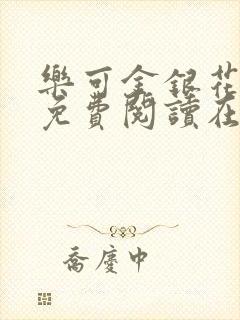 樂可金銀花
免費閱讀在
喬慶中